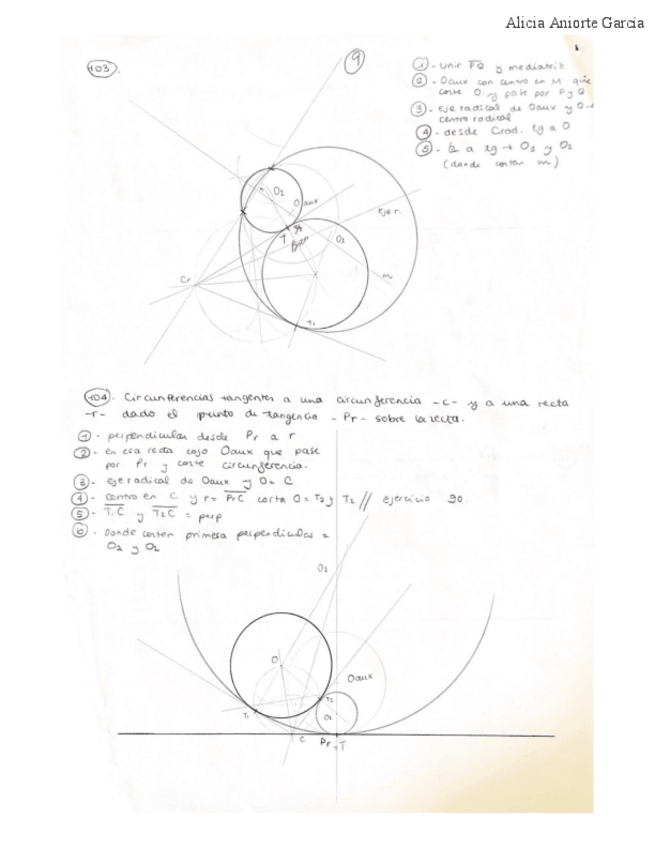 Alicia Aniorte García
103.
9
1
① - unir PQ y mediatriz
② - Oaux con centro en M que
corte O y pase por P y Q
③ - eje radical de Oaux y O →
centro radical
④ - desde Crad. tg a O
⑤ - ⊥ a tg → O1 y O2
(donde corten m)
O2
O aux
Eje r.
T
O1
m
Cr
T1
104. Circunferencias tangentes a una circunferencia -c- y a una recta
-r- dado el punto de tangencia - Pr - sobre la recta.
① - perpendicular desde Pr a r
② - en esa recta cojo Oaux que pase
por Pr y corte circunferencia.
③ - eje radical de Oaux y O = C
④ - centro en C y r = PrC corta O = T1 y T2 // ejercicio 90.
⑤ - T1C y T2C = perp
⑥ - Donde corten primera perpendicular =
O1 y O2
O1
O
Oaux
T2
T1
O2
C
Pr = T